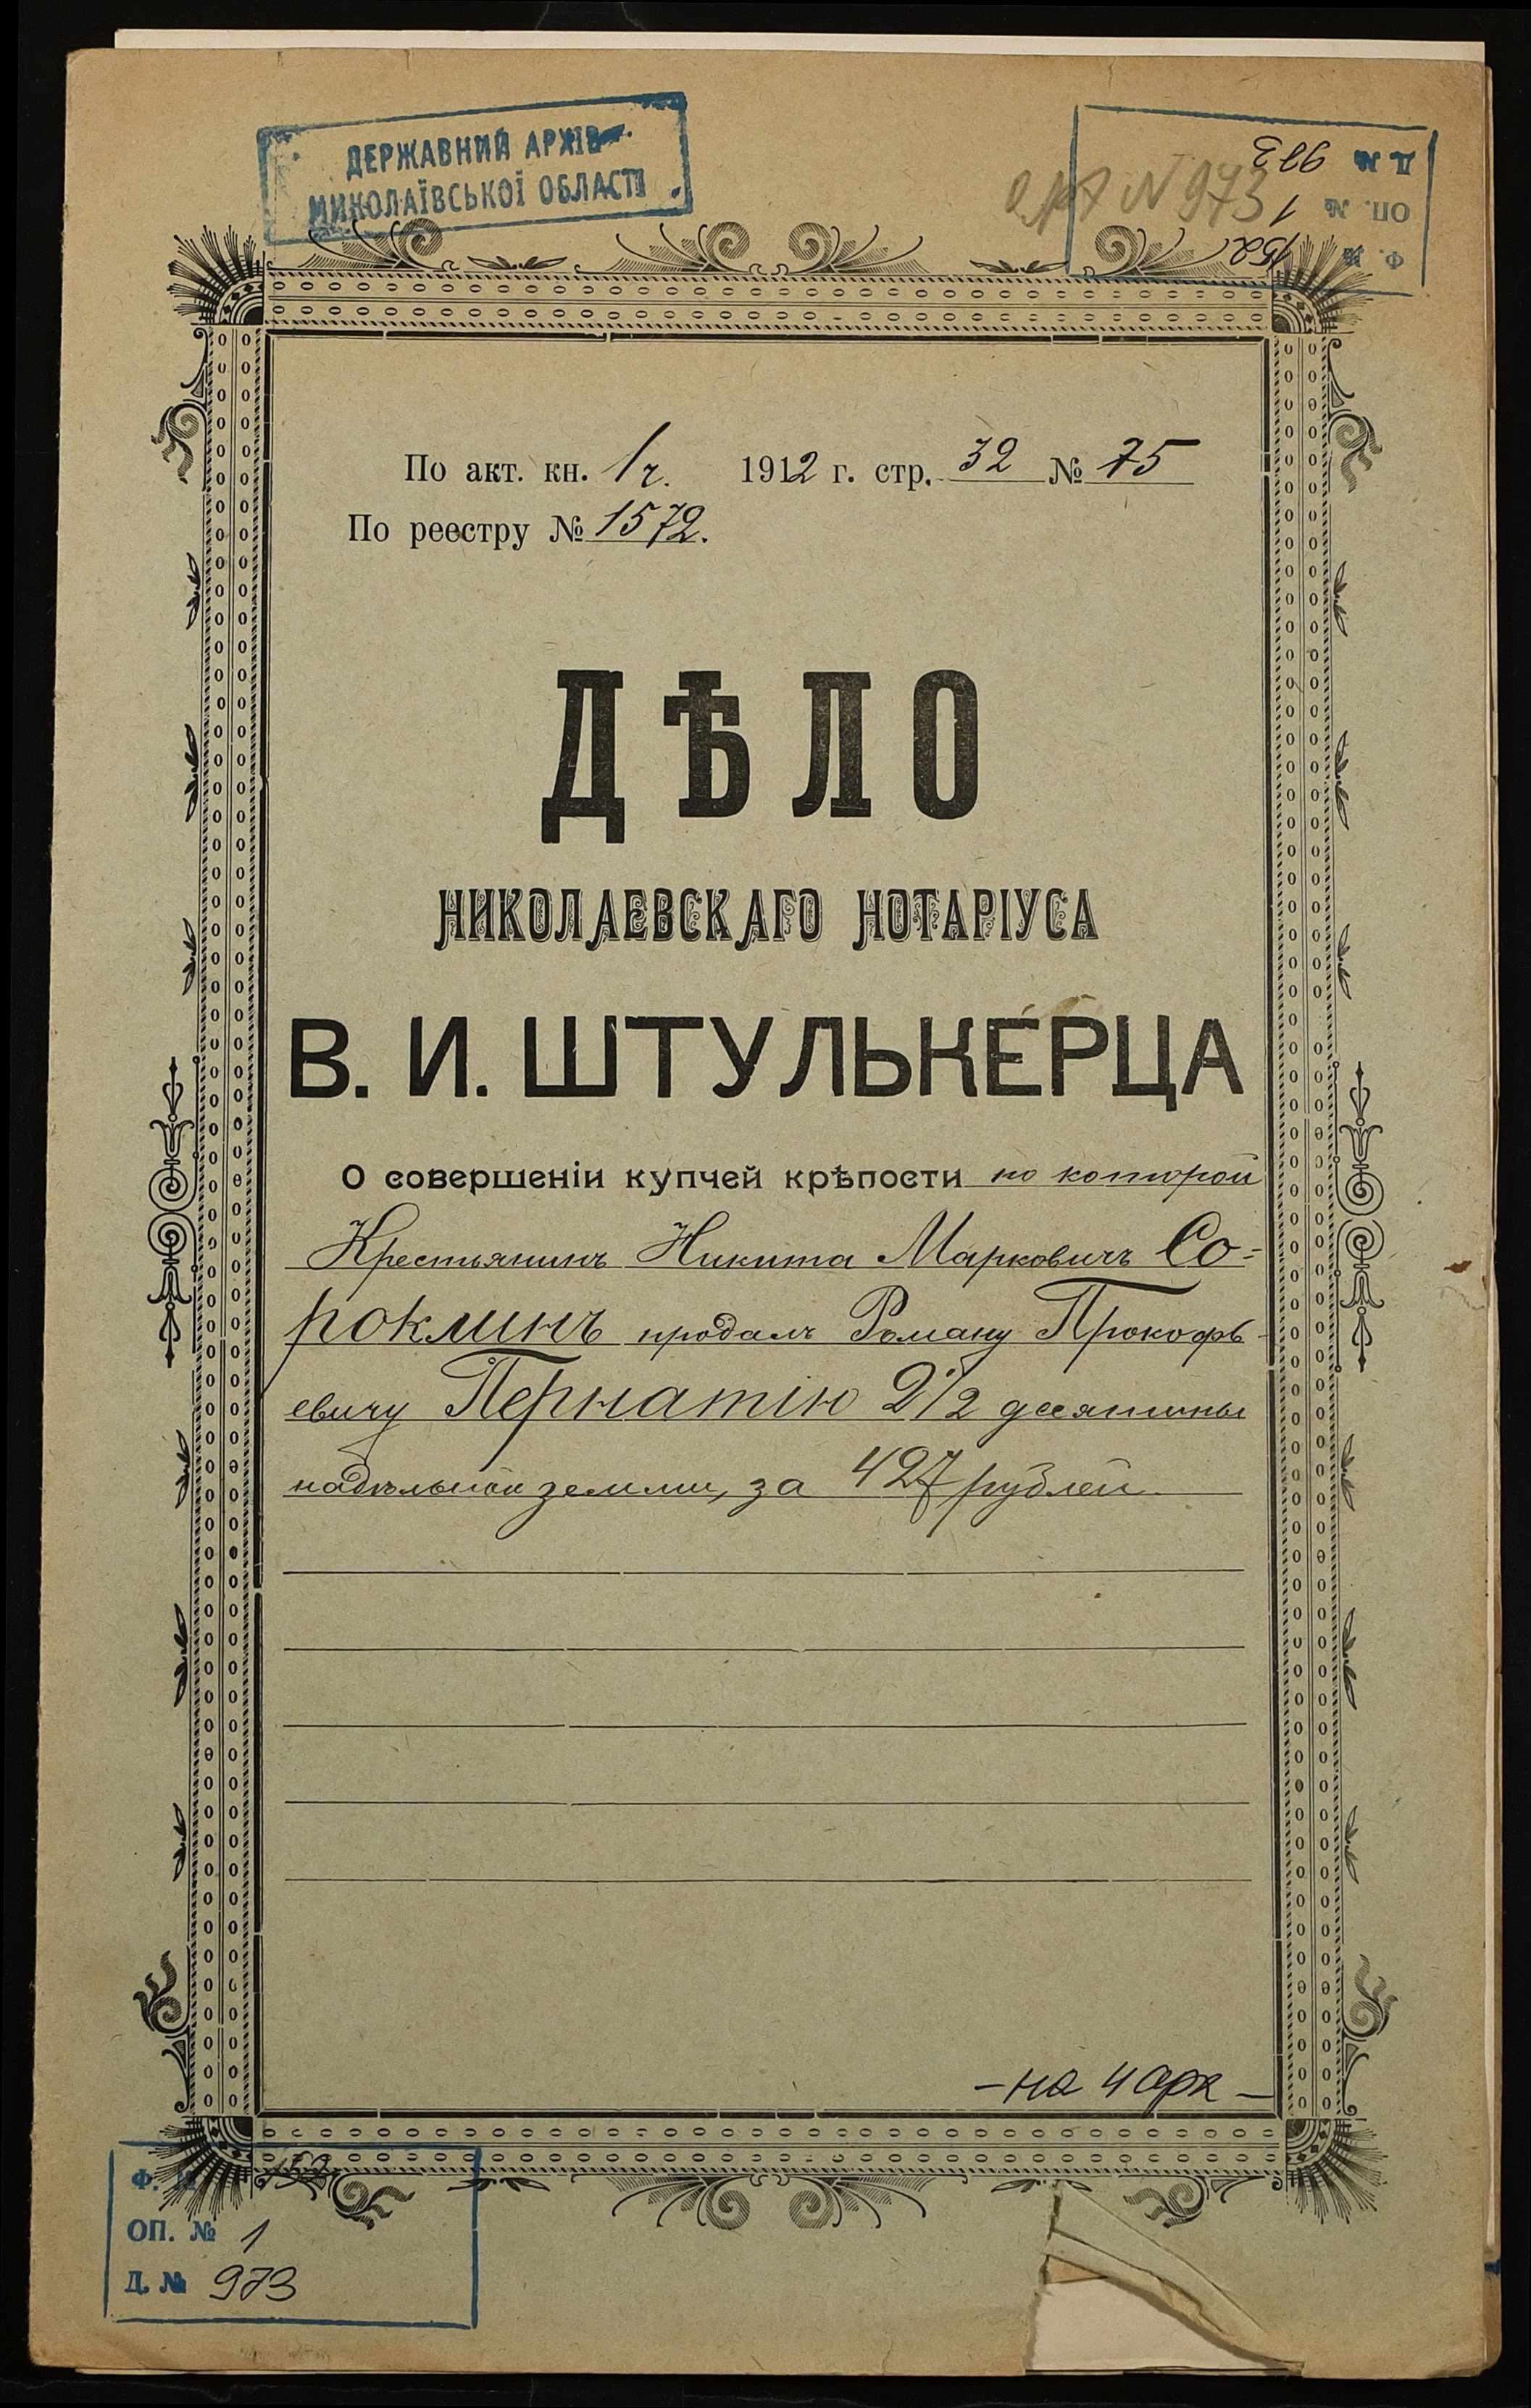 ДЕРЖАВНИЙ АРХІВ
МИКОЛАЇВСЬКОЇ ОБЛАСТІ
Ф. № 152
ОП. № 1
Д. № 973
N 973
По акт. кн. 1 ч. 1912 г. стр. 32 № 75
По реестру № 1572.
ДѢЛО
НИКОЛАЕВСКАГО НОТАРІУСА
В. И. ШТУЛЬКЕРЦА
О совершеніи купчей крѣпости по которой
Крестьянинъ Никита Марковичъ Со-
роклинъ продалъ Роману Прокофь-
евичу Пернатію 2 1/2 десятины
надѣльной земли, за 427 рублей
– на 4 арк –
Ф. № 152
ОП. № 1
Д. № 973